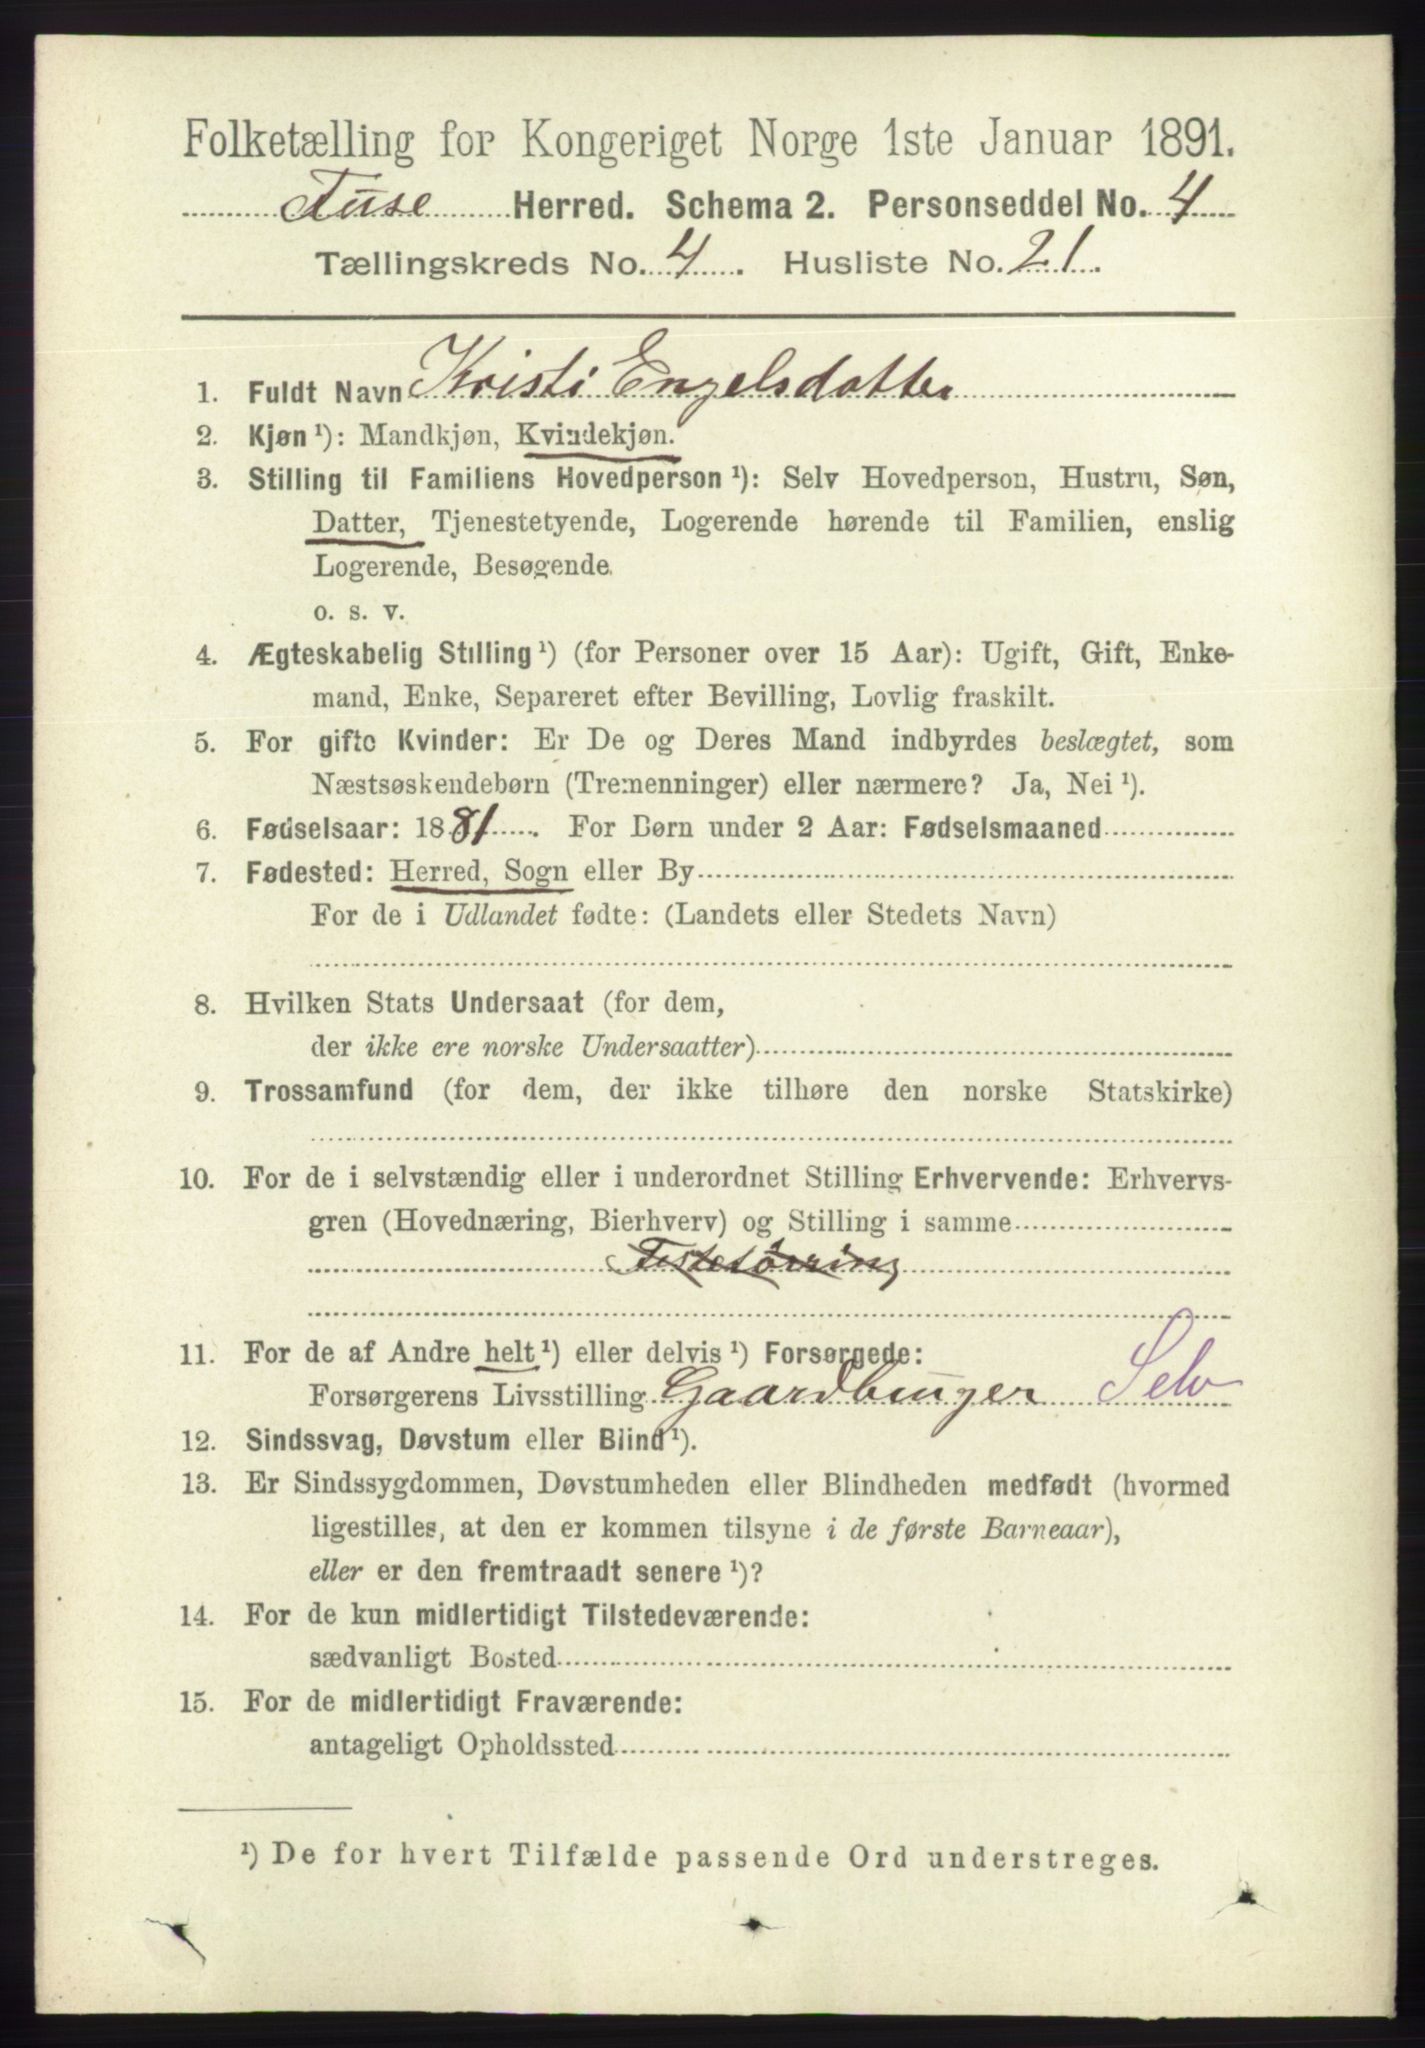 Folketælling for Kongeriget Norge 1ste Januar 1891.
Fuse Herred. Schema 2. Personseddel No. 4
Tællingskreds No. 4. Husliste No. 21.
1. Fuldt Navn Kristi Engelsdatter
2. Kjøn¹): Mandkjøn, Kvindekjøn.
3. Stilling til Familiens Hovedperson¹): Selv Hovedperson, Hustru, Søn,
Datter, Tjenestetyende, Logerende hørende til Familien, enslig
Logerende, Besøgende
o. s. v.
4. Ægteskabelig Stilling¹) (for Personer over 15 Aar): Ugift, Gift, Enke-
mand, Enke, Separeret efter Bevilling, Lovlig fraskilt.
5. For gifte Kvinder: Er De og Deres Mand indbyrdes beslægtet, som
Næstsøskendebørn (Tremenninger) eller nærmere? Ja, Nei¹).
6. Fødselsaar: 1881. For Børn under 2 Aar: Fødselsmaaned
7. Fødested: Herred, Sogn eller By
For de i Udlandet fødte: (Landets eller Stedets Navn)
8. Hvilken Stats Undersaat (for dem,
der ikke ere norske Undersaatter)
9. Trossamfund (for dem, der ikke tilhøre den norske Statskirke)
10. For de i selvstændig eller i underordnet Stilling Erhvervende: Erhvervs-
gren (Hovednæring, Bierhverv) og Stilling i samme
11. For de af Andre helt¹) eller delvis¹) Forsørgede:
Forsørgerens Livsstilling Gaardbruger Selv
12. Sindssvag, Døvstum eller Blind¹).
13. Er Sindssygdommen, Døvstumheden eller Blindheden medfødt (hvormed
ligestilles, at den er kommen tilsyne i de første Barneaar),
eller er den fremtraadt senere¹)?
14. For de kun midlertidigt Tilstedeværende:
sædvanligt Bosted
15. For de midlertidigt Fraværende:
antageligt Opholdssted
¹) De for hvert Tilfælde passende Ord understreges.